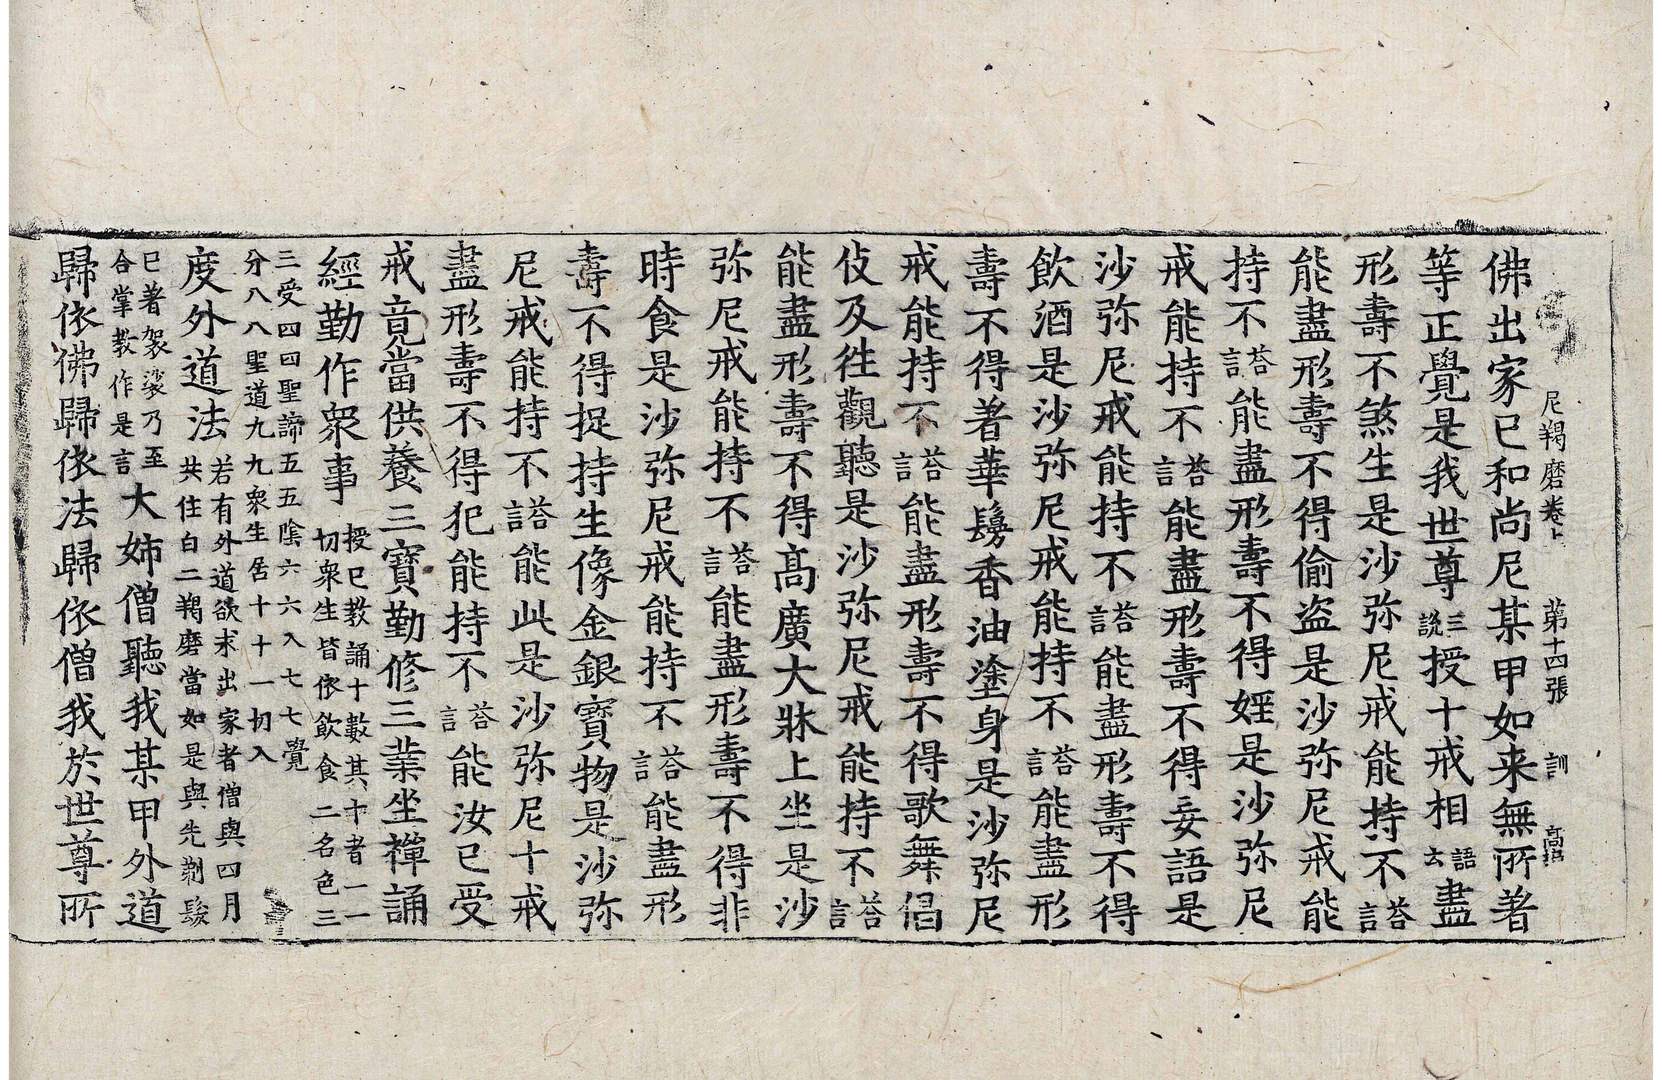 尼羯磨卷上　第十四張　訓　高招
佛出家已和尚尼某甲如来無所著
等正覺是我世尊三說授十戒相語云盡
形壽不煞生是沙弥尼戒能持不荅言
能盡形壽不得偷盗是沙弥尼戒能
持不荅言能盡形壽不得婬是沙弥尼
戒能持不荅言能盡形壽不得妄語是
沙弥尼戒能持不荅言能盡形壽不得
飲酒是沙弥尼戒能持不荅言能盡形
壽不得著華鬘香油塗身是沙弥尼
戒能持不荅言能盡形壽不得歌舞倡
伎及往觀聽是沙弥尼戒能持不荅言
能盡形壽不得髙廣大牀上坐是沙
弥尼戒能持不荅言能盡形壽不得非
時食是沙弥尼戒能持不荅言能盡形
壽不得捉持生像金銀寶物是沙弥
尼戒能持不荅言能此是沙弥尼十戒
盡形壽不得犯能持不荅言能汝已受
戒竟當供養三寶勤修三業坐禪誦
經勤作衆事授已教誦十數其十者一一切衆生皆依飲食二名色三
三受四四聖諦五五陰六六入七七覺分八八聖道九九衆生居十十一切入
度外道法若有外道欲求出家者僧與四月共住白二羯磨當如是與先剃髮
已著袈裟乃至合掌教作是言大姉僧聽我某甲外道
歸依佛歸依法歸依僧我於世尊所